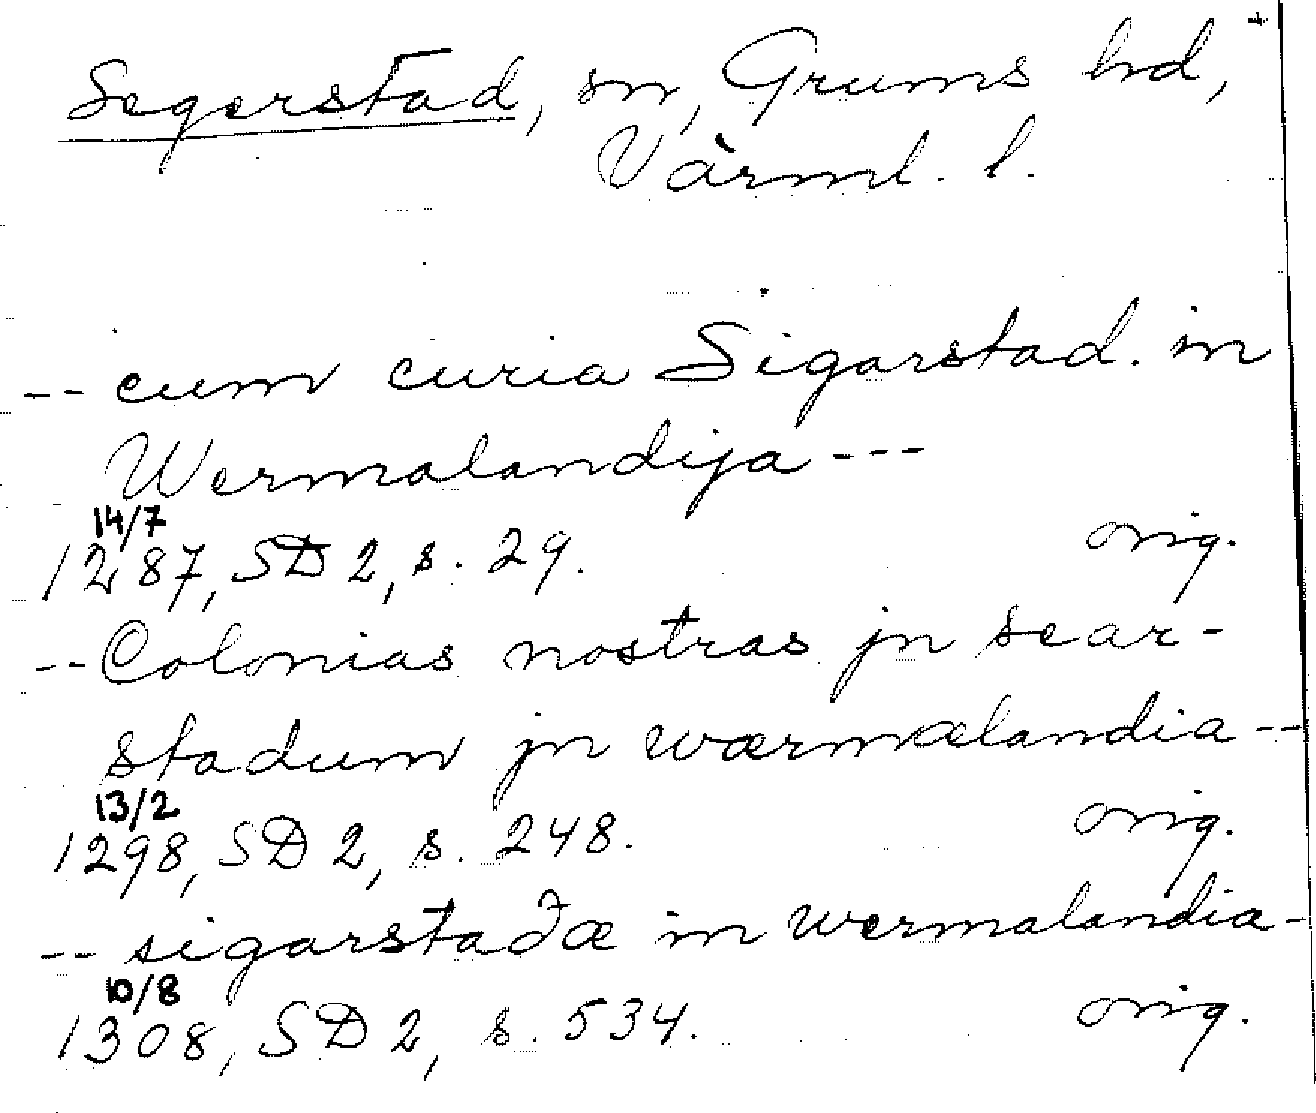 Segerstad, sn, Grums hd,
Värml. l.
-- cum curia Sigarstad. in
Wermalandija ---
14/7
1287, SD 2, s. 29. orig.
-- Colonias nostras jn sear-
stadum jn wærmælandia --
13/2
1298, SD 2, s. 248. orig.
-- sigarstaðæ in wermalandia -
10/8
1308, SD 2, s. 534. orig.